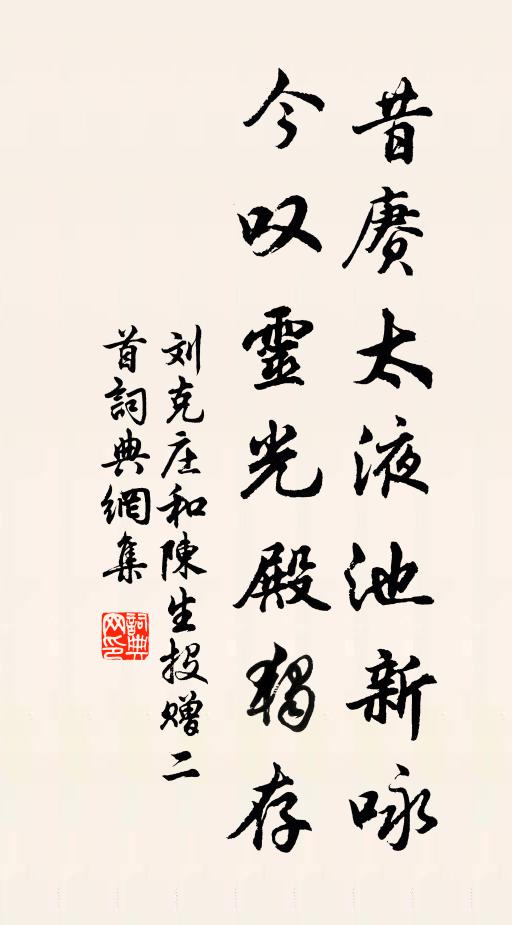 昔赓太液池新咏
今叹靈光殿獨存
刘克庄和陳生投赠二
首詞典網集
詞典网印